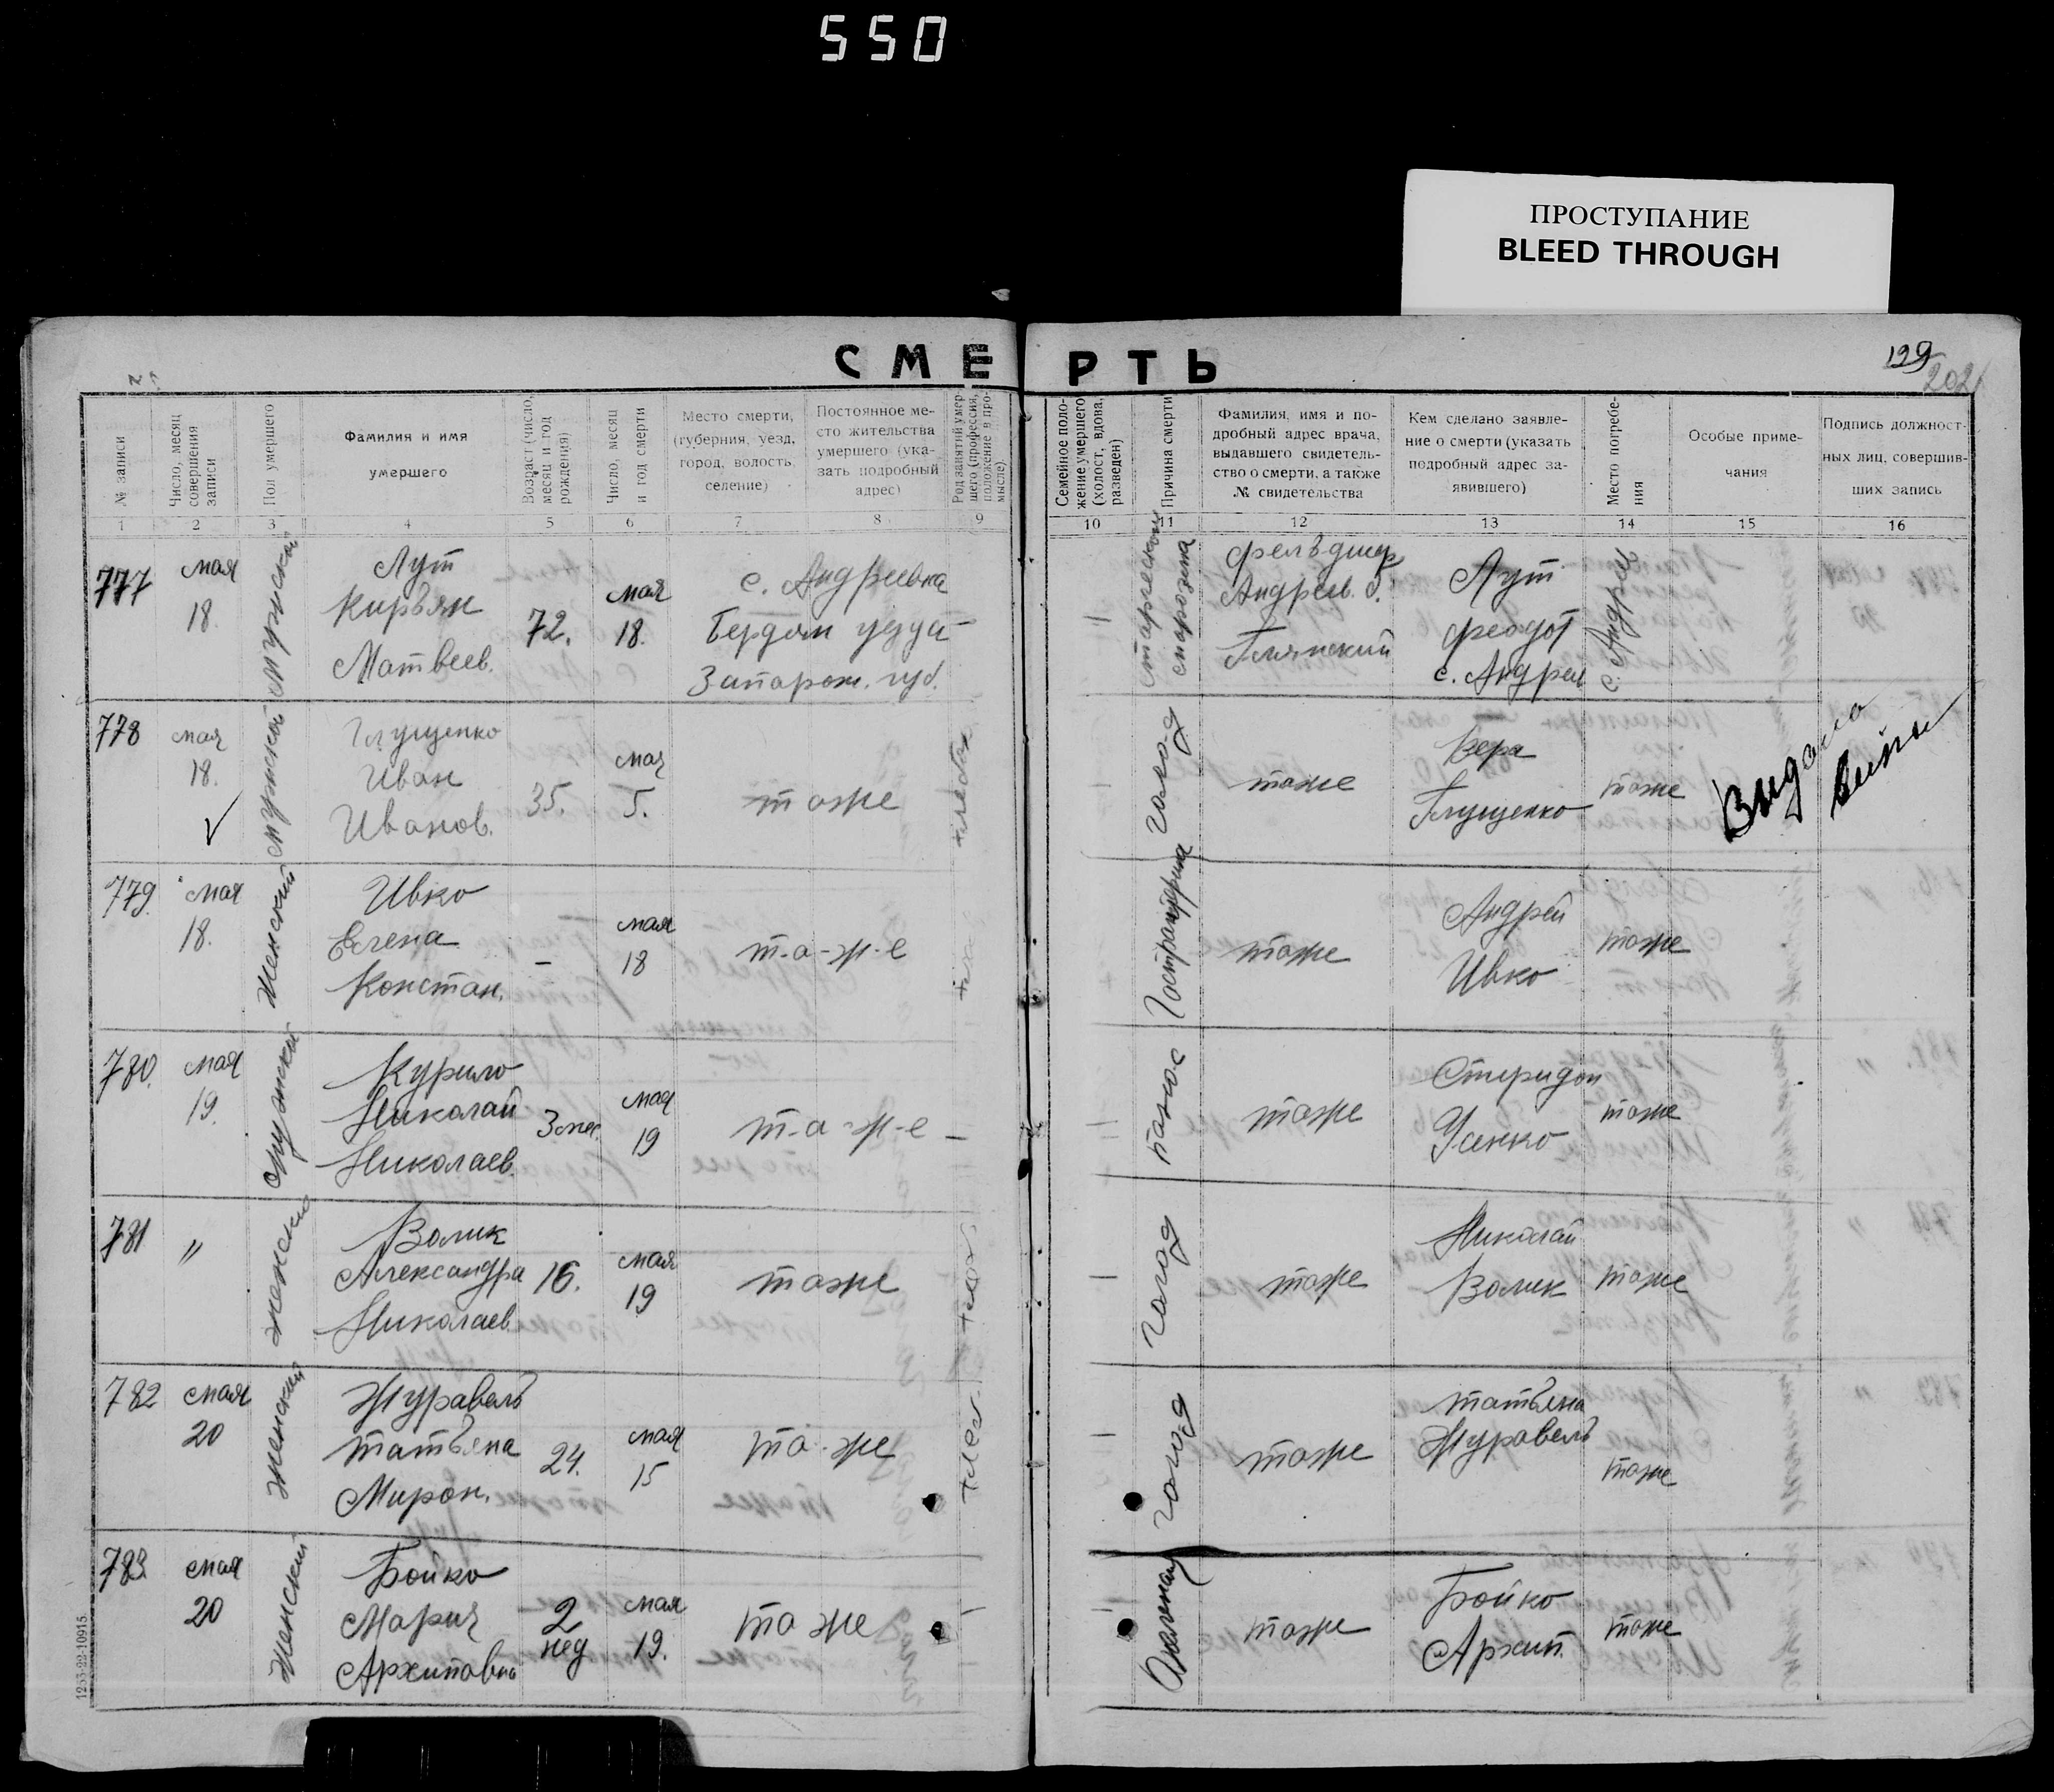 550
ПРОСТУПАНИЕ
BLEED THROUGH
СМЕРТЬ
199
202
№ записи
Число, месяц
совершения
записи
Пол умершего
Фамилия и имя
умершего
Возраст (число,
месяц и год
рождения)
Число, месяц
и год смерти
Место смерти,
(губерния, уезд,
город, волость,
селение)
Постоянное ме-
сто жительства
умершего (ука-
зать подробный
адрес)
Род занятий умер-
шего (профессия,
положение в про-
мысле)
Семейное поло-
жение умершего
(холост, вдова,
разведен)
Причина смерти
Фамилия, имя и по-
дробный адрес врача,
выдавшего свидетель-
ство о смерти, а также
№ свидетельства
Кем сделано заявле-
ние о смерти (указать
подробный адрес за-
явившего)
Место погребе-
ния
Особые приме-
чания
Подпись должност-
ных лиц, совершив-
ших запись
1 2 3 4 5 6 7 8 9 10 11 12 13 14 15 16
777
мая
18.
мужской
Лут
Кирьян
Матвеев.
72.
мая
18.
с. Андреевка
Бердян уезда
Запорож. губ.
фельдшер
Андреев. б.
Лут
Феодот
с. Андреев
с. Андреев
778
мая
18.
мужской
Глущенко
Иван
Иванов.
35.
мая
5.
тоже
голод
тоже
Вера
Глущенко
тоже
779.
мая
18.
женский
Ивко
Елена
Констан.
–
мая
18
т-а-ж-е
тоже
Андрей
Ивко
тоже
780.
мая
19.
мужской
Курило
Николай
Николаев.
3 мес.
мая
19
т-а-ж-е
–
понос
тоже
Спиридон
Усенко
тоже
781
"
женски
Волик
Александра
Николаев
16.
мая
19
тоже
голод
тоже
Николай
Волик
тоже
782
мая
20
женский
Журавель
Татьяна
Мирон.
24.
мая
15
то-же
голод
тоже
Татьяна
Журавель
тоже
783.
мая
20
женский
Бойко
Мария
Архиповна
2
нед
мая
19.
то же
тоже
Бойко
Архип.
тоже
1253-22-10915